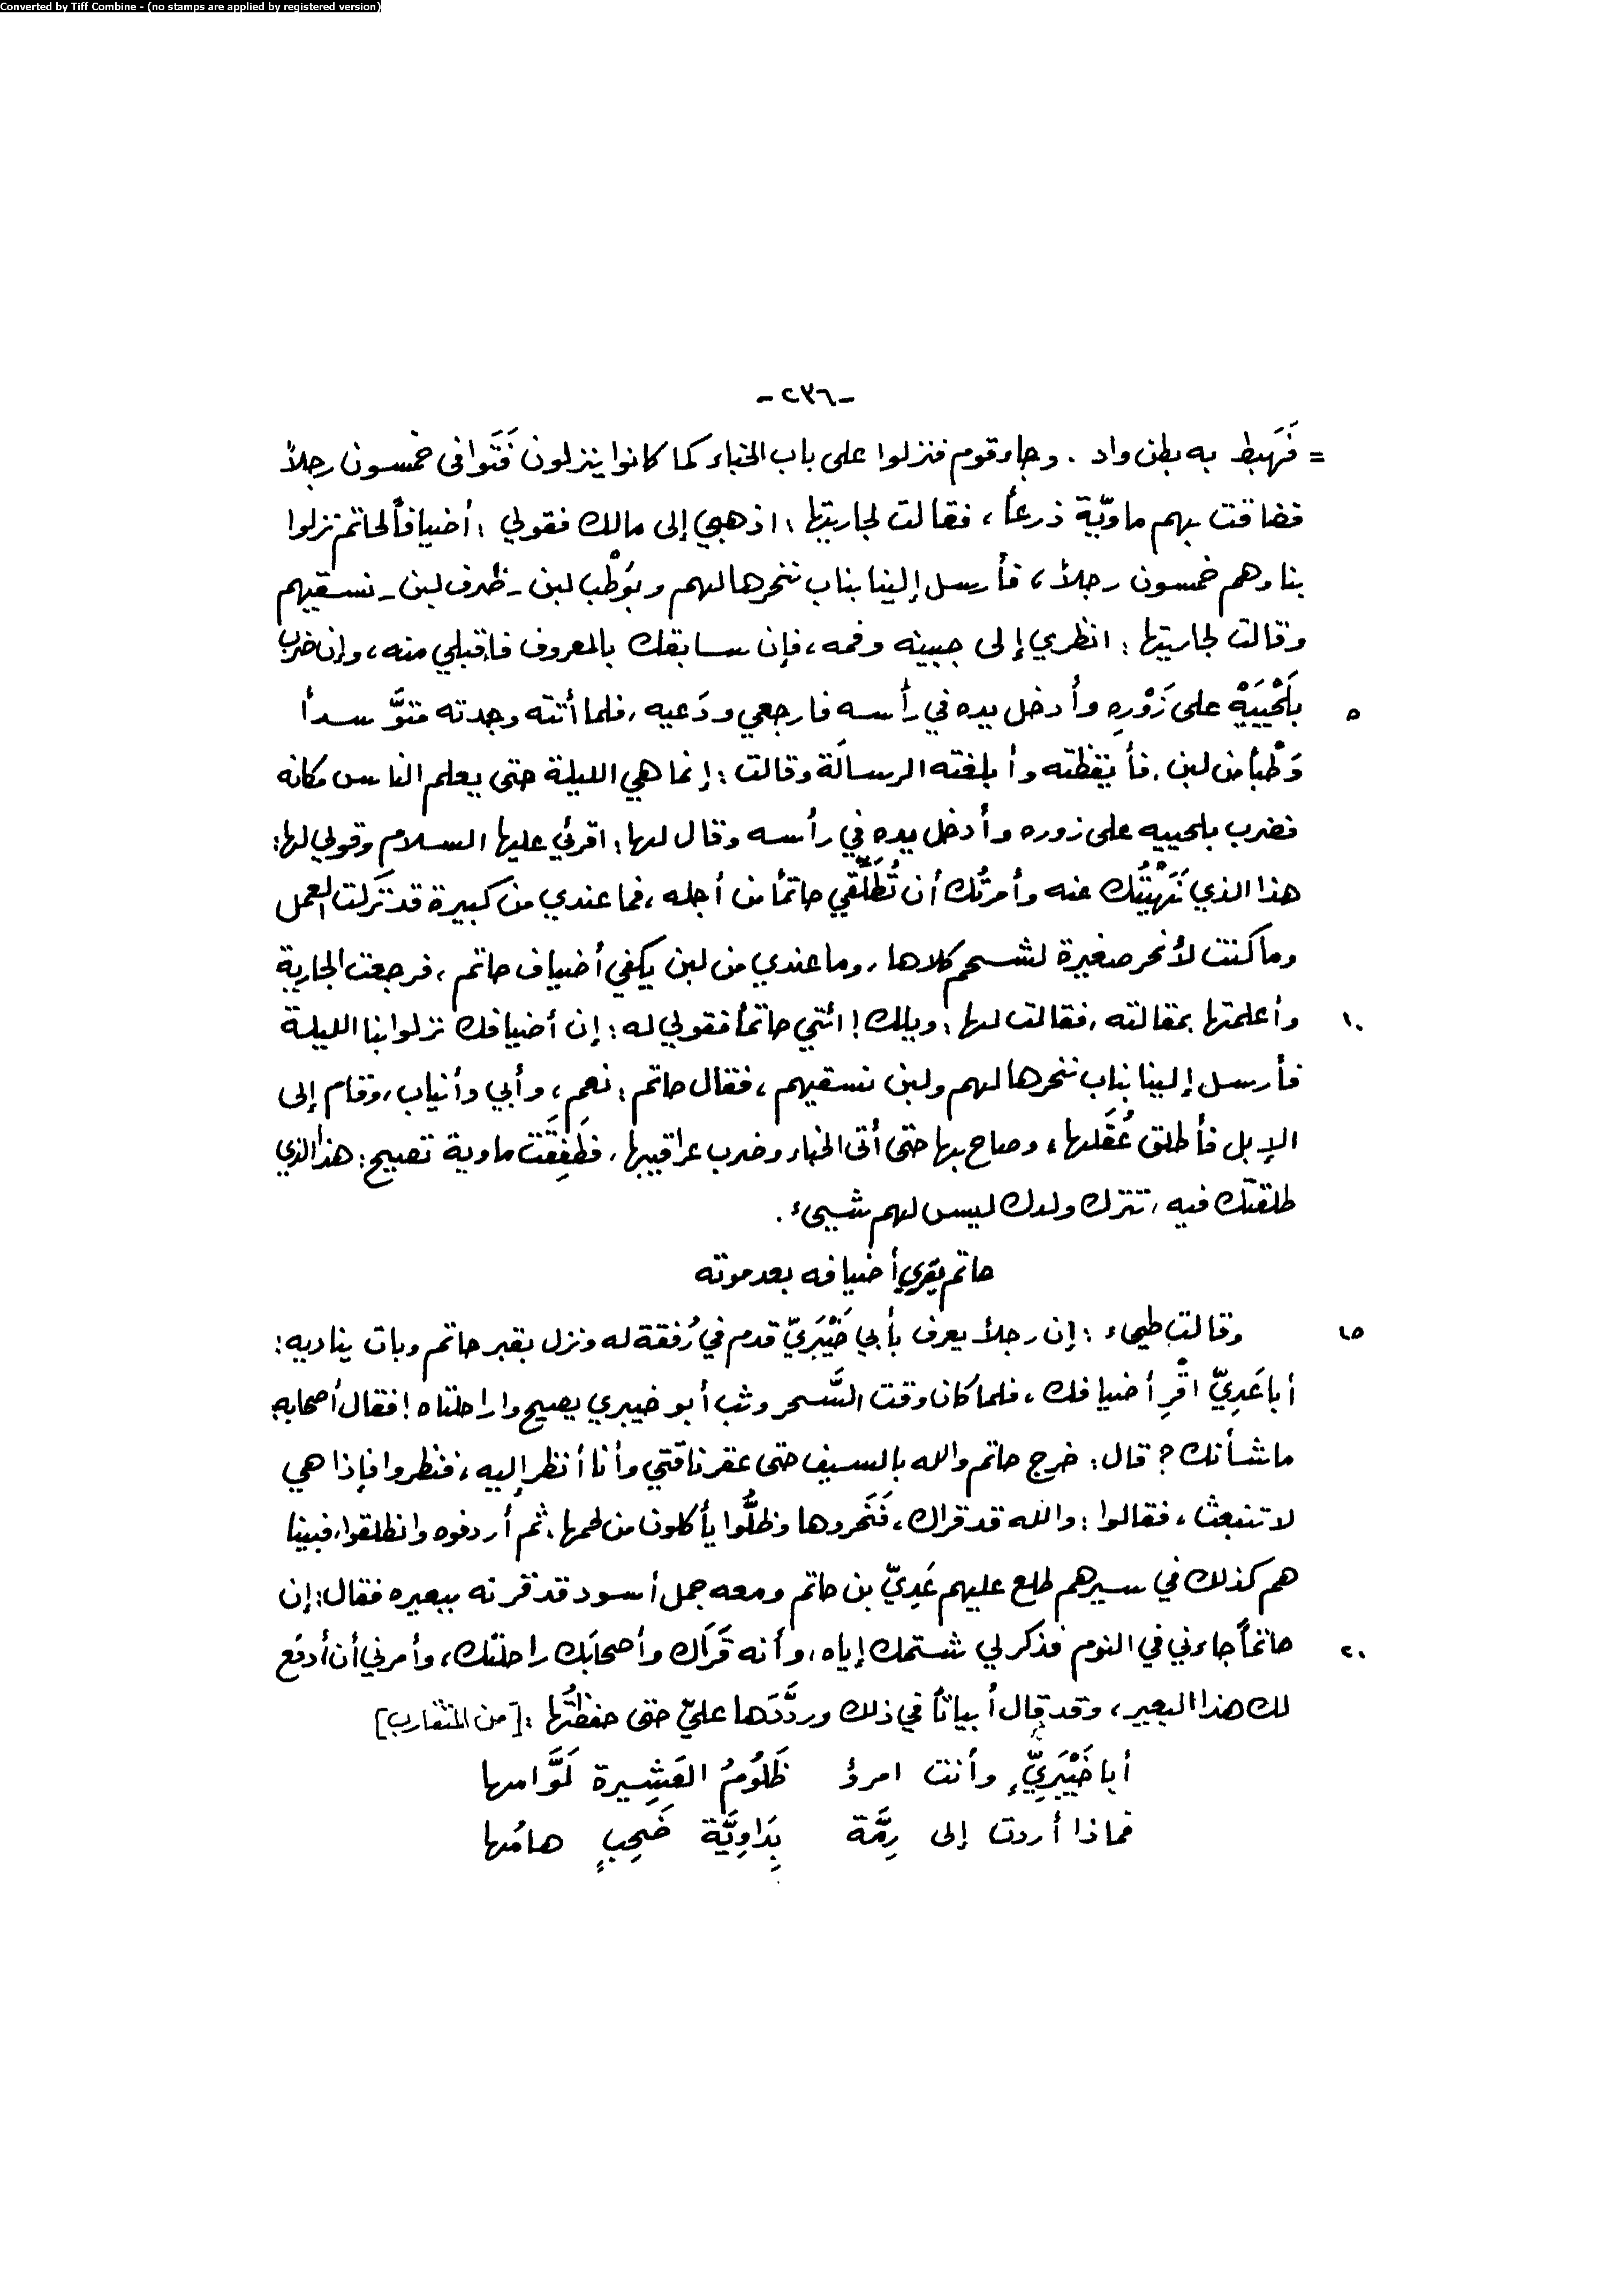 Converted by Tiff Combine - (no stamps are applied by registered version)
-٢٣٦-
= فَهَبط به بطن واد . وجاء قوم فنزلوا على باب الخباء كما كانوا ينزلون فَتَوافى خمسون رجلاً
فضاقت بهم ماويّة ذرعاً، فقالت لجاريتها: اذهبي إلى مالك فقولي : أضيافاً لحاتم نزلوا
بنا وهم خمسون رجلاً، فأرسل إلينا بناب ننحرها لهم وبوَطْب لبن - ظرف لبن - نسقيهم
وقالت لجاريتها : انظري إلى جبينه وفمه، فإن سابقك بالمعروف فاقبلي منه، وإن ضرب
٥ بلَحْيَيْه على زَوْرِه وأدخل يده في رأسه فارجعي ودَعيه، فلما أتته وجدته متوَّسداً
وَطْباً من لبن، فأيقظته وأبلغته الرسالَة وقالت : إنما هي الليلة حتى يعلم الناس مكانه
فضرب بلحييه على زوره وأدخل يده في رأسه وقال لها : اقرئي عليها السلام وقولي لها:
هذا الذي نَهْيْتُك عنه وأمرتُك أن تُطَلِّقي حاتماً من أجله، فما عندي من كبيرة قد تَركت العمل
وما كنت لأنحر صغيرة لشحم كلاها، وما عندي من لبن يكفي أضياف حاتم، فرجعت الجارية
١٠ وأعلمتها بمقالته، فقالت لها : ويلك! ائتي حاتماً فقولي له : إن أضيافك نزلوا بنا الليلة
فأرسل إلينا بناب ننحرها لهم ولبن نسقيهم، فقال حاتم : نعم، وأبي وأنياب، وقام إلى
الإبل فأطلق عُقَلها، وصاح بها حتى أتى الخباء وضرب عراقيبها، فطَفِقَت ماوية تصيح: هذا الذي
طلقتك فيه، تترك ولدك ليس لهم شيىء .
حاتم يَقري أضيافه بعد موته
١٥ وقالت طيىء : إن رجلاً يعرف بأبي خَيْبَريّ قدم في رُفقة له ونزل بقبر حاتم وبات يناديه :
أبا عَدِيّ اقْرِ أضيافك، فلما كان وقت السَّحر وثب أبو خيبري يصيح وا راحلتاه! فقال أصحابه
ما شأنك؟ قال: خرج حاتم والله بالسيف حتى عقر ناقتي وأنا أنظر إليه، فنظروا فإذا هي
لا تنبعث، فقالوا : والله قد قراك، فَنَحروها وظلُّوا يأكلون من لحمها، ثم أردفوه وانطلقوا، فبينا
هم كذلك في سيرهم طلع عليهم عَدِيّ بن حاتم ومعه جمل أسود قد قرنه ببعيره فقال: إن
٢٠ حاتماً جاءني في النوم فذكر لي شتمك إياه، وأنه قَرَاك وأصحابَك راحلتك، وأمرني أن أدفع
لك هذا البعير، وقد قال أبياتاً في ذلك وردَّدَها عليّ حتى حفظتُها : [من المتقارب]
أبا خَيْبَرِيّ وأنت امرؤ ظَلُومُ العَشِيرة لَوَّامها
فماذا أردت إلى رِمَّة بِدَاوِيَّة صَخِبٍ هامُها